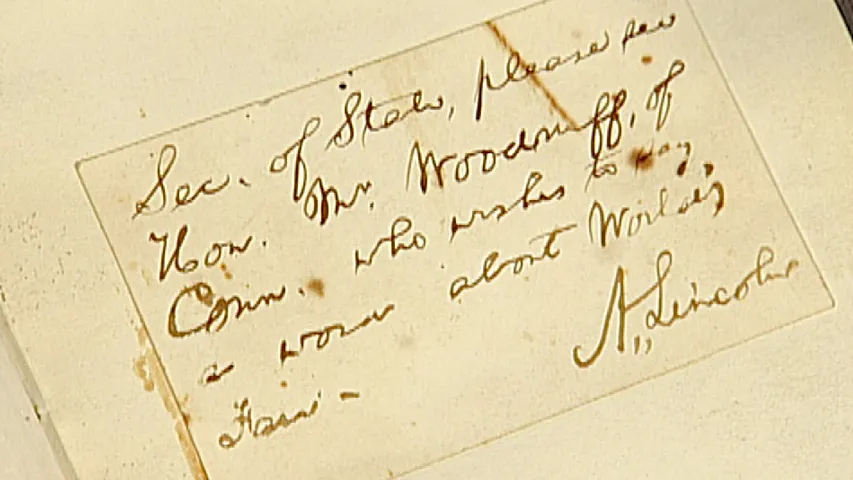 Sec. of State, please see
Hon. Mr. Woodruff, of
Conn. who wishes to say
a word about World's
Fair -
A. Lincoln